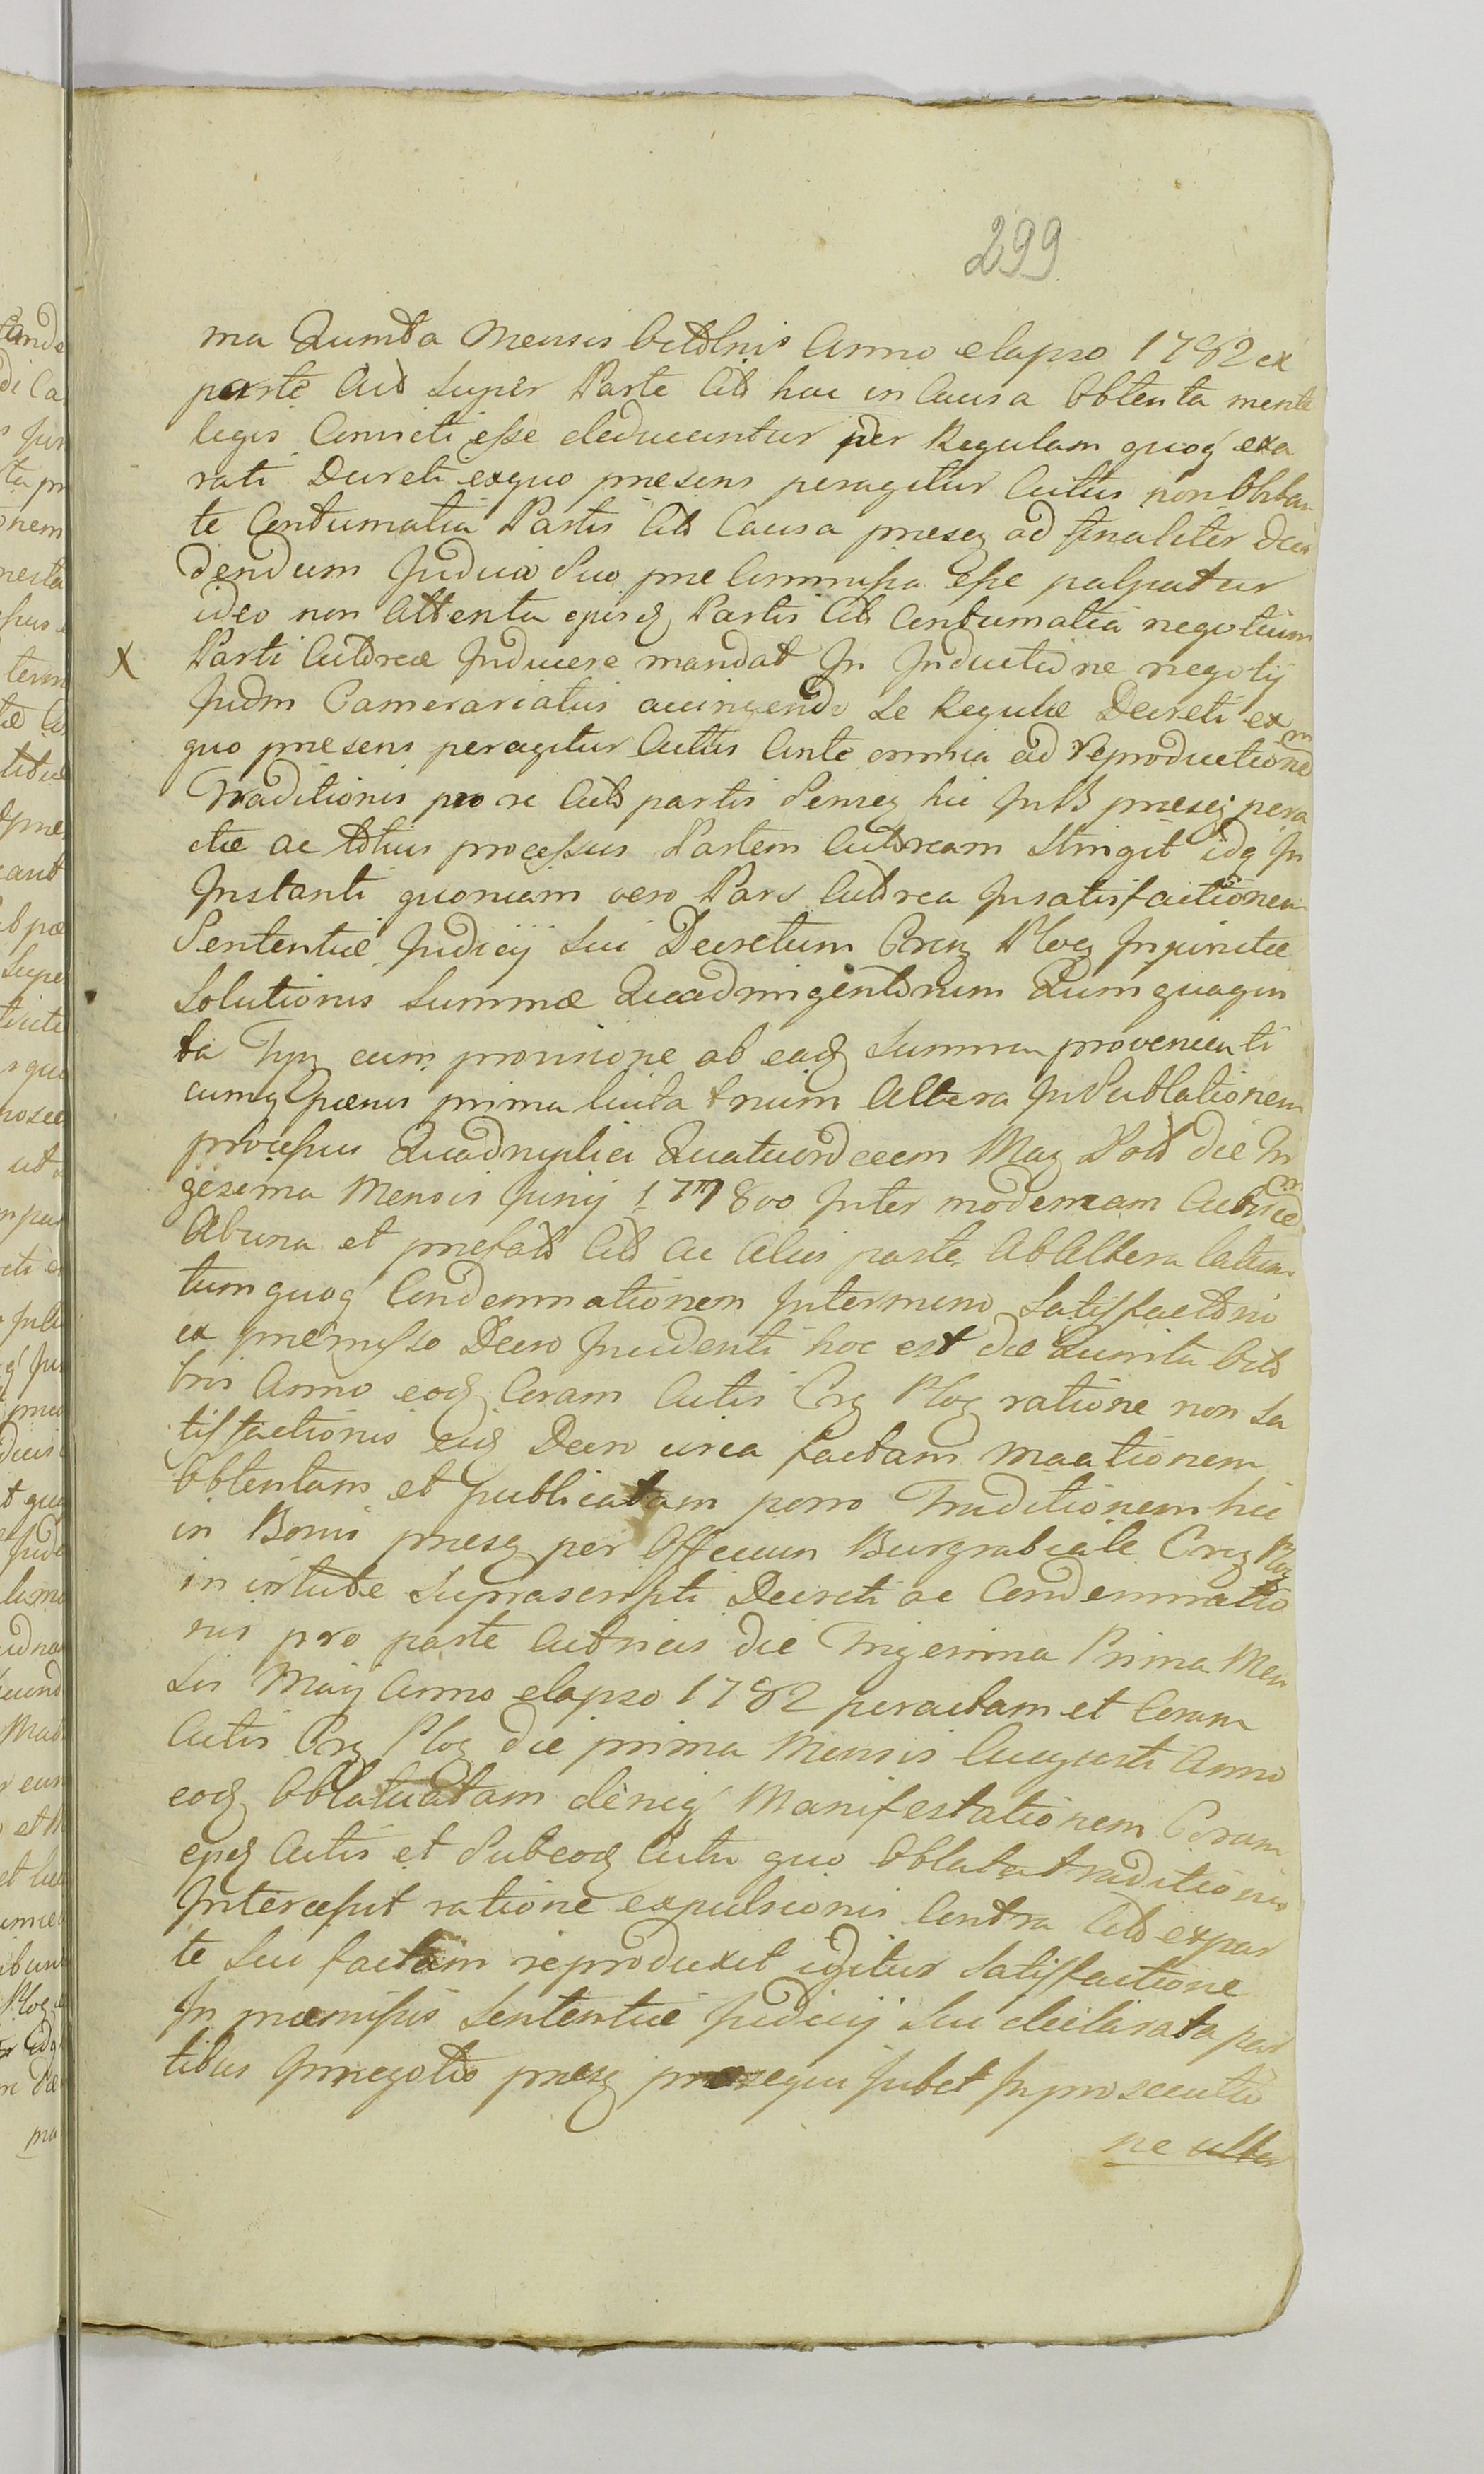 299
ma Quinta Mensis Octobris Anno elapso 1782 ex
parte Act super Parte Cit hac in Causa Obtenta mente
legis Convicti esse deducuntur per Regulam quoq exa
rati Decreti exquo praesens peragitur Actus non Obstan
te Contumatia Partis Cit Causa praeseq ad finaliter deci
dendum Judicio Suo prae Commissa esse
ideo non Attenta ejusq Partis Cit Contumatia negotium
x Parti Actoreae Inducere mandat In Inductione negotij
Judm Camerariatus accingendo se Regulae Decreti ex
quo praesens peragitur Actus Ante omnia ad reproductionem
Traditionis pro re Act partis hic praeseq pera
ctae ac totius processus Partem Actoream Stringit idq In
Instanti quoniam vero Pars Actorea Insatisfactionem
Sententiae Judicij sui Decretum Crcq Ploq Injunctae
Solutionis Summae Quadringentorum Quinquagin
ta cum provisione ab eadq Summa provenienti
cumq Paenis prima luita trium Altera In Sublationem
processus Quadruplici Quatuordecem Marq Pol die Tri
gesima Mensis Junij 1 77 800 Inter modernam
Abuna et praefat Cit ac Alius parte Ab Altera latum
tumquoq Condemnationem Intermino Satisfactorio
ex praemisso Decro Incidenti hoc est die Quinta Octo
bris Anno eodq Coram Actis Crq Ploq ratione non Sa
tisfactionis eidq Decro circa factam
Obtentam et publicatam porro Traditionem hic
in Bonis praesq per Officium Burgrabiale Crcq Ploq
in virtute Suprascripti Decreti ac Condemnatio
nis pro parte Actricis die Trigesima Prima Men
sis Maij Anno elapso 1782 peractam et Coram
Actis Crq Ploq die prima Mensis Augusti Anno
eodq Oblatuatam deniq Manifestationem Coram
ejsdq Actis et Subeodq Actu quo Oblata traditionis
Intercessit ratione expulsionis Contra Cit expar
te sui factam reproduxit igitur Satisfactione
In praemissis Sententiae Judicij Sui declarata par
tibus Innegotio praesq prosequi Jubet Inprosecutio
ne ulter